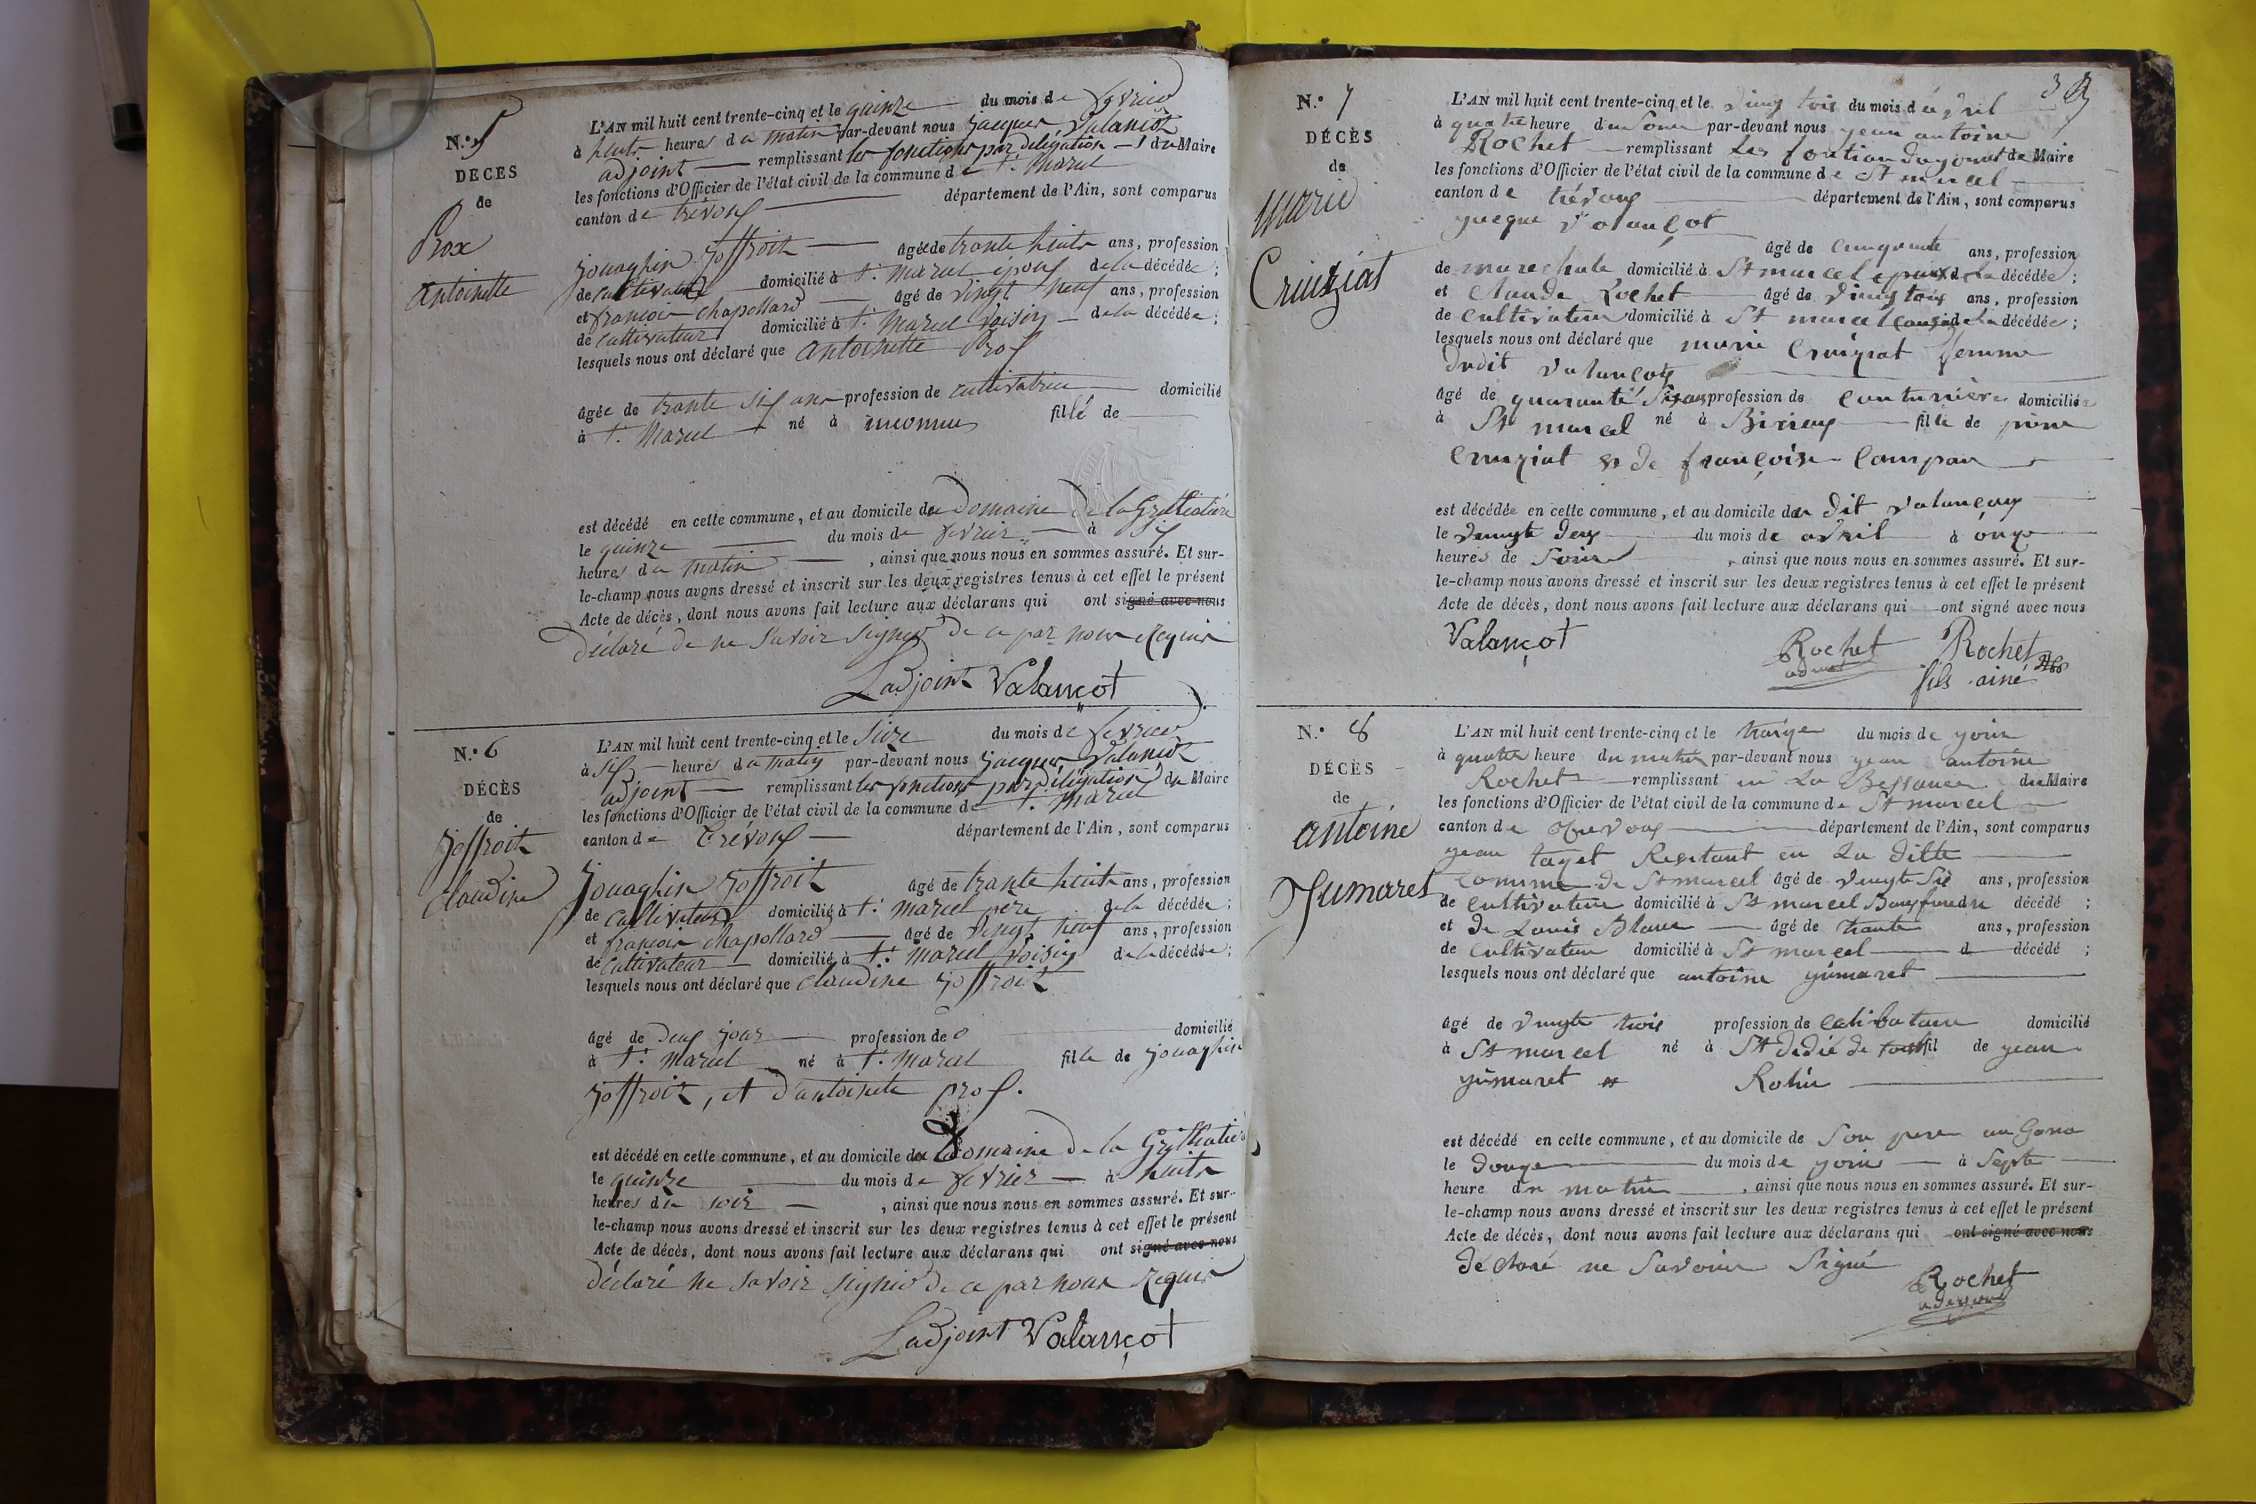 N.° 5
DÉCÈS
de
Prox
Antoinette
L'AN mil huit cent trente-cinq et le quinze du mois de fevrier
à huit heures du matin par-devant nous jacques Valançot
adjoint remplissant les fonctions par délégation du Maire
les fonctions d'Officier de l'état civil de la commune de St. Marcel
canton de trévoux département de l'Ain, sont comparus
jouaghin joffroit âgé de trante huit ans, profession
de cultivateur domicilié à St. Marcel époux de la décédée;
et françois chapollard âgé de vingt neuf ans, profession
de cultivateur domicilié à St. Marcel voisin de la décédée;
lesquels nous ont déclaré que antoinette Prox
âgée de trante six ans profession de cultivatrice domicilié
à St. Marcel né à inconnus fille de
est décédé en cette commune, et au domicile du Domaine de la Grilliatière
le quinze du mois de fevrier à six
heures du matin, ainsi que nous nous en sommes assuré. Et sur-
le-champ nous avons dressé et inscrit sur les deux registres tenus à cet effet le présent
Acte de décès, dont nous avons fait lecture aux déclarans qui ont signé avec nous
déclaré de ne savoir signer de ce par nous requis
Ladjoint Valançot
N.° 6
DÉCÈS
de
joffroit
claudine
L'AN mil huit cent trente-cinq et le seize du mois de fevrier
à six heures du matin par-devant nous jacques Valançot
adjoint remplissant les fonctions par délégation du Maire
les fonctions d'Officier de l'état civil de la commune de St. Marcel
canton de Trévoux département de l'Ain, sont comparus
jouaghin joffroit âgé de trante huit ans, profession
de cultivateur domicilié à St. marcel pere de la décédée;
et françois chapollard âgé de vingt neuf ans, profession
de cultivateur domicilié à St. marcel voisin de la décédée;
lesquels nous ont déclaré que claudine joffroit
âgé de deux jour profession de 0 domicilié
à St. marcel né à St. marcel fille de jouaghin
joffroit, et d'antoinette prox.
est décédé en cette commune, et au domicile du Domaine de la Grilliatière
le quinze du mois de fevrier à huit
heures du soir, ainsi que nous nous en sommes assuré. Et sur-
le-champ nous avons dressé et inscrit sur les deux registres tenus à cet effet le présent
Acte de décès, dont nous avons fait lecture aux déclarans qui ont signé avec nous
déclaré ne savoir signer de ce par nous requis
Ladjoint Valançot
N.° 7
DÉCÈS
de
Marie
Cruiziat
L'AN mil huit cent trente-cinq et le vingt tois du mois d'avril
à quatre heure du soir par-devant nous jean antoine
Rochet remplissant Les fontion de Maire
les fonctions d'Officier de l'état civil de la commune de St marcel
canton de trévoux département de l'Ain, sont comparus
jacque valançot âgé de cinquante ans, profession
de marechale domicilié à St marcel epoux de la décédée;
et claude Rochet âgé de vingt tois ans, profession
de cultivateur domicilié à St marcel de la décédée;
lesquels nous ont déclaré que marie cruiziat femme
dudit valançot
âgé de quarante six ans profession de couturière domiciliée
à St marcel né à Birieux fille de pierre
cruiziat et de françoise compan
est décédée en cette commune, et au domicile du dit valançot
le vingte deux du mois de avril à onze
heures de soire, ainsi que nous nous en sommes assuré. Et sur-
le-champ nous avons dressé et inscrit sur les deux registres tenus à cet effet le présent
Acte de décès, dont nous avons fait lecture aux déclarans qui ont signé avec nous
Valançot Rochet Rochet
fils ainé
N.° 8
DÉCÈS
de
antoine
Jumaret
L'AN mil huit cent trente-cinq et le traize du mois de juin
à quatre heure du matin par-devant nous jean antoine
Rochet remplissant en La du Maire
les fonctions d'Officier de l'état civil de la commune de St marcel
canton de trevoux département de l'Ain, sont comparus
jean taget Resitant en La ditte
commune de St marcel âgé de vingte six ans, profession
de cultivateur domicilié à St marcel décédé;
et de Louis Blanc âgé de trante ans, profession
de cultivateur domicilié à St marcel d décédé;
lesquels nous ont déclaré que antoine jumaret
âgé de vingte trois profession de celibataire domicilié
à St marcel né à St didié de fil de jean
jumaret et Rolin
est décédé en cette commune, et au domicile de son pere
le douze du mois de juin à septe
heure du matin, ainsi que nous nous en sommes assuré. Et sur-
le-champ nous avons dressé et inscrit sur les deux registres tenus à cet effet le présent
Acte de décès, dont nous avons fait lecture aux déclarans qui ont signé avec nous
déclaré ne savoire signé
Rochet